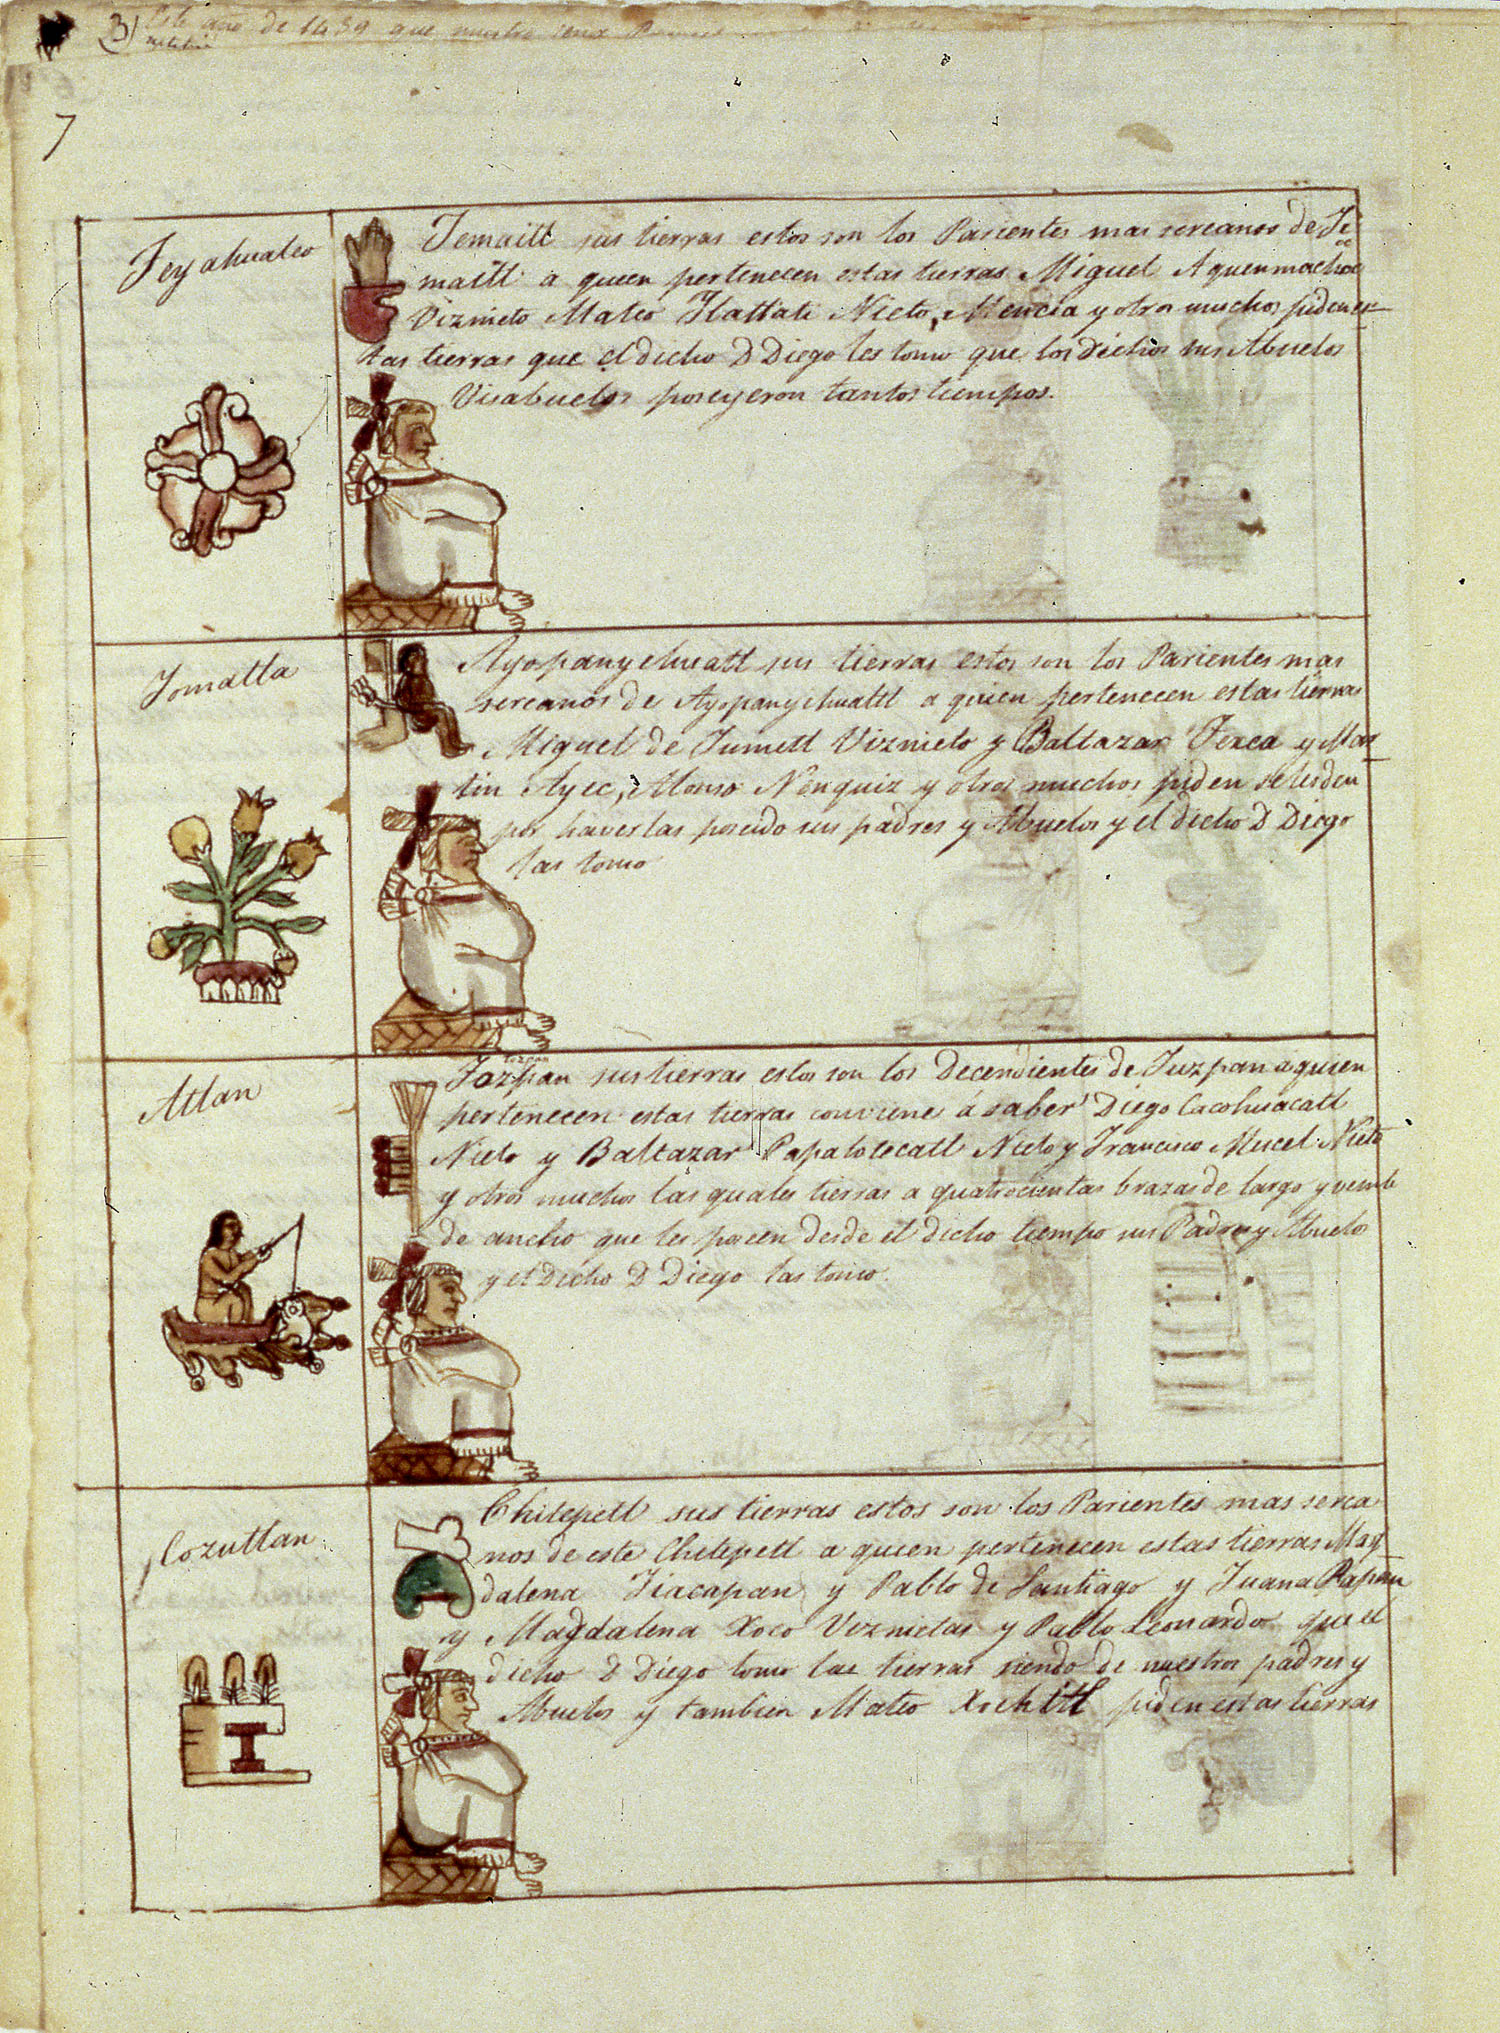 3) Este año de 1439 que
7
Teyahualco
Temaitl sus tierras estos son los Parientes mas sercanos de Te
maitl a quien pertenecen estas tierras Miguel Aquenmachoc
Viznieto Mateo Tlattati Nieto, Mencia y otros muchos piden es
tas tierras que el dicho D Diego les tomo que los dichos sus Abuelos
Visabuelos poseyeron tantos tiempos.
Tomatla
Ayopanyehuatl sus tierras estos son los Parientes mas
sercanos de Ayopanyehuatl a quien pertenecen estas tierras
Miguel de Tumetl Viznieto y Baltazar Texca y Mar
tin Ayec, Alonso Nenquiz y otros muchos piden se les den
por haverlas poseido sus padres y Abuelos y el dicho D Diego
las tomo
Atlan
tozpan
Tozpan sus tierras estos son los Decendientes de Tuzpan a quien
pertenecen estas tierras conviene á saber Diego Cacohuacatl
Nieto y Baltazar Papalotecatl Nieto y Francisco Mucel Nieto
y otros muchos las quales tierras a quatrocientas brazas de largo y veinte
de ancho que les poseen desde el dicho tiempo sus Padres y Abuelo
y el Dicho D Diego las tomo.
Cozutlan
Chilepetl sus tierras estos son los Parientes mas serca
nos de este Chilepetl a quien pertenecen estas tierras Mag
dalena Tiacapan y Pablo de Santiago y Juana Papan
y Magdalena Xoco Viznietas y Pablo Leonardo que el
dicho D Diego tomo las tierras siendo de nuestros padres y
Abuelos y tambien Mateo Xochitl piden estas tierras